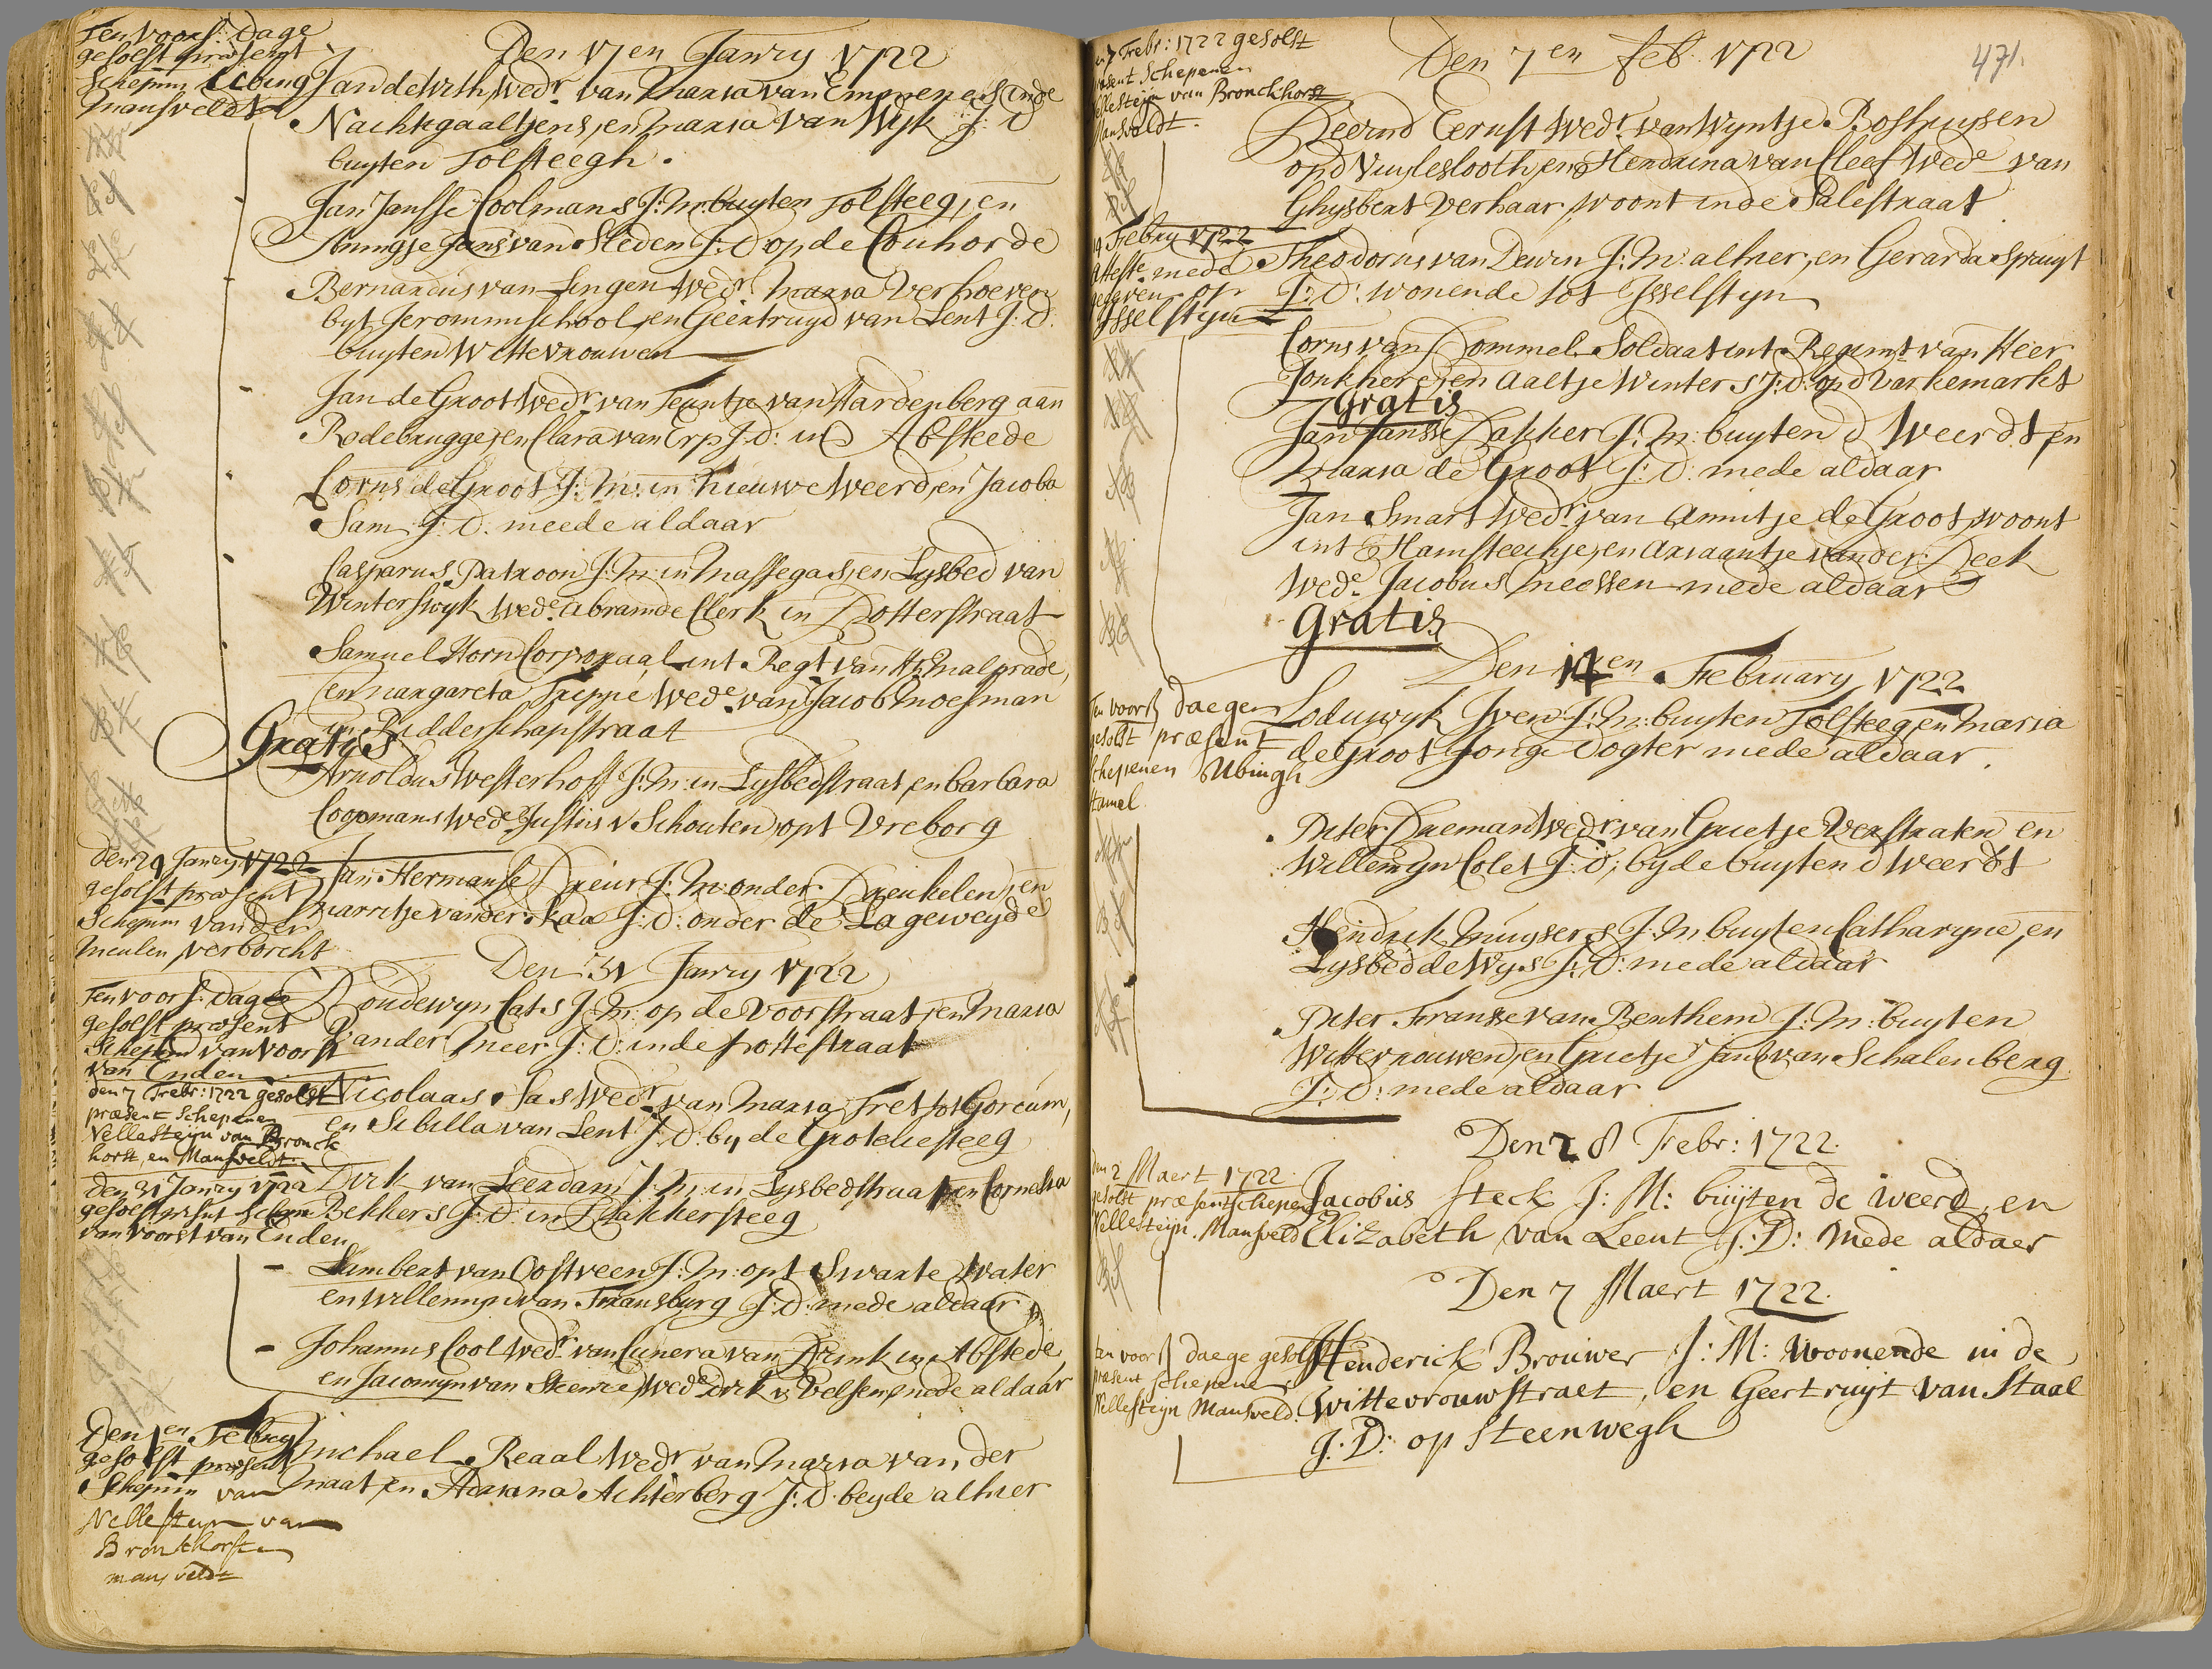 Ten voors: Dage
gesolst present
Schepen Ecbing
Mansveldt
Den 17en Janry 1722
Jan de With, Wedr. van Maria van Emmenes inde
Nachtegaaltjens, en maria van Wyk J: D
buyten Tolsteegh.
Jan Jansse Coolmans J: M: buyten Tolsteeg, en
Annigje Jans van Sleden J: D op de Couhorde
Bernardus van Lingen Wedr. Maria Verhoeven
byt Jeronimischool, en Geertruyd van Lent J: D.
buyten Wittevrouwen
Jan de Groot Wedr. van Teuntje van Hardenberg aan
Rodebrugge, en Clara van Erp J: D: in Abstede
Corns de Groot J: M: in Nieuwe Weerd, en Jacoba
Sam J: D: meede aldaar
Casparus Patroon J: M: in Massegast, en Lysbed van
Winterswyk Wede. Abram de Clerk in Dotterstraat
Samuel Horn Corporaal int Regt van Hr. Malprade,
en margareta Wede. van Jacob Moesman
in Ridderschapstraat
Gratis
Arnoldus Westerhoff J: M: in Lysbedstraat, en barbara
Coopmans Wede. Justus v Schouten, opt Vreborg
den 29 Janry 1722
gesolst present
Schepen vander
meulen, verborcht
Jan Hermanse J: M: onder Dreukelen, en
marritje vander Kaa J: D: onder de Lageweyde
Den 31 Janry 1722
Ten voors: Dage
gesolst present
Schepen van voorst
van Enden
Boudewyn Cats J: M: op de Voorstraat, en maria
vander Meer J: D: inde Pottestraat
den 7 Febr: 1722 gesolst
præsent Schepenen
Nellesteijn van Bronck
horst, en Mansveldt
Nicolaas Sas Wedr. van maria Fret tot Gorcum,
en Sibilla van Lent J: D: by de Groteliesteeg
den 31 Janry 1722
gesolst present Schepen
van voorst van Enden
Dirk van Leerdam J: M: in Lysbedstraat, en Cornelia
Bekkers J: D: in Bakkersteeg
Lambert van Oostveen J: M: opt Swarte Water
en Willemyn van Transburg J: D: mede aldaar
Johannis Cool Wedr. van Cunera van Brink in Abstede,
en Jacomyn van Steenre Wede Dirk v. Velsen, mede aldaar
Den 1en Febry
gesolst present
Schepen van
Nellesteyn van
Bronkhorst en
mansveldt
Michael Reaal Wedr van Maria van der
maat, en Adriana Achterberg J: D beyde alhier
471.
7 Febr: 1722 gesolst
præsent Schepenen
Nellesteijn van Bronckhorst
Mansveldt.
Den 7en feb. 1722
Eernst Wedr. van Wyntje Boshuysen
op d Vuylesslooth, en Hendrina van Cleef Wede van
Ghysbert Verhaar, woont inde Palestraat
Febry 1722
Atteste. mede
gegeven op
Ysselstyn
Theodorus van Deurn J: M: alhier, en Gerarda Spruyt
J: D: wonende tot Ysselstyn
Corns van Dommel Soldaat int Regimt van Heer
Jonkhere, en Aaltje Winters J: D: op d Varkemarkt
Gratis
Jan Jansse Dakker J: M: buyten d Weerdt en
maria de Groot J: D: mede aldaar
Jan Smart Wedr. van Annitje de Groot, woont
int Hamsteechje, en Ariaantje vander Leek
Wede. Jacobus Meessen mede aldaar
Gratis
Den 14en February 1722
Ten voors daegen
gesolst præsent
Schepenen Ubingh
Hamel
Loduwyk Iven J: M: buyten Tolsteeg, en maria
de Groot Jonge Dogter mede aldaar.
Pieter Dreman Wedr van Grietje Verstraten en
Willemyn Colet J: D, by de buyten d Weerdt
Hendrik Muysers J: M: buyten Catharyne, en
Lysbed de Wys J: D: mede aldaar
Pieter Franse van Benthem J: M: buyten
Wittevrouwen, en Grietje Jans van Schalenberg
J: D: mede aldaar
Den 28 Febr: 1722.
Den 2 Maert 1722
gesolst præsent Schepen
Nellesteijn. Mansveld
Jacobus Steck J: M: buijten de weerd, en
Elizabeth van Leent J: D: mede aldaer
Den 7 Maert 1722.
ten voors daege gesolst
præsent Schepene
Nellesteijn Mansveld.
Henderick Brouwer J: M: woonende in de
Wittevrouwstraet, en Geertruijt van Staal
J: D: op Steenwegh